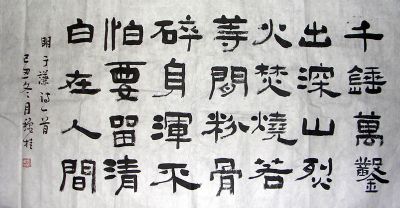 千錘萬鑿
出深山烈
火焚燒若
等閒粉骨
碎身渾不
怕要留清
白在人間
明于謙詩一首
己丑冬月